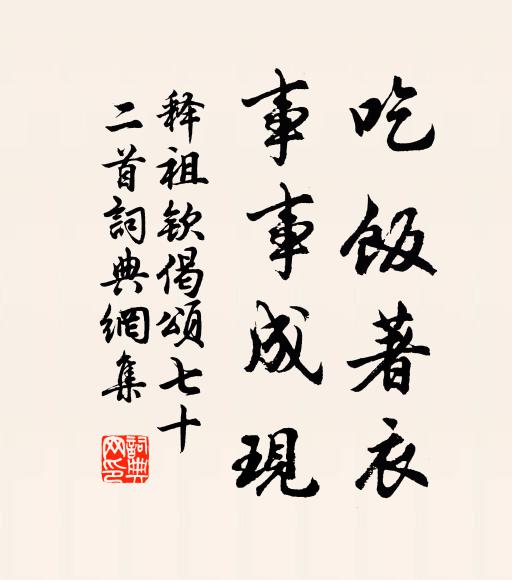 吃飯著衣
事事成現
释祖欽偈頌七十
二首詞典網集
詞典
网印